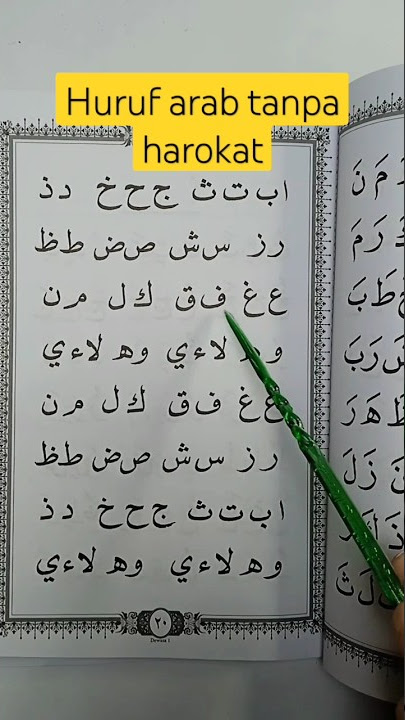 Huruf arab tanpa
harokat
ا ب ت ث ج ح خ د ذ
ر ز س ش ص ض ط ظ
ع غ ف ق ك ل م ن
و ه لا ء ي و ه لا ء ي
ع غ ف ق ك ل م ن
ر ز س ش ص ض ط ظ
ا ب ت ث ج ح خ د ذ
و ه لا ء ي و ه لا ء ي
٢٠
Dewasa 1
مَ نَ
رَ مَ
طَ بَ
رَ بَ
هَ رَ
زَ لَ
ذَ كَ رَ
لَ ثَ